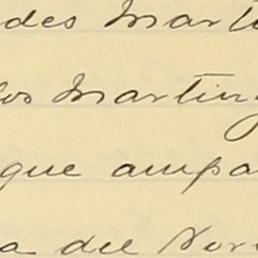 des Marti
los Marting
que ampa
a del Nor